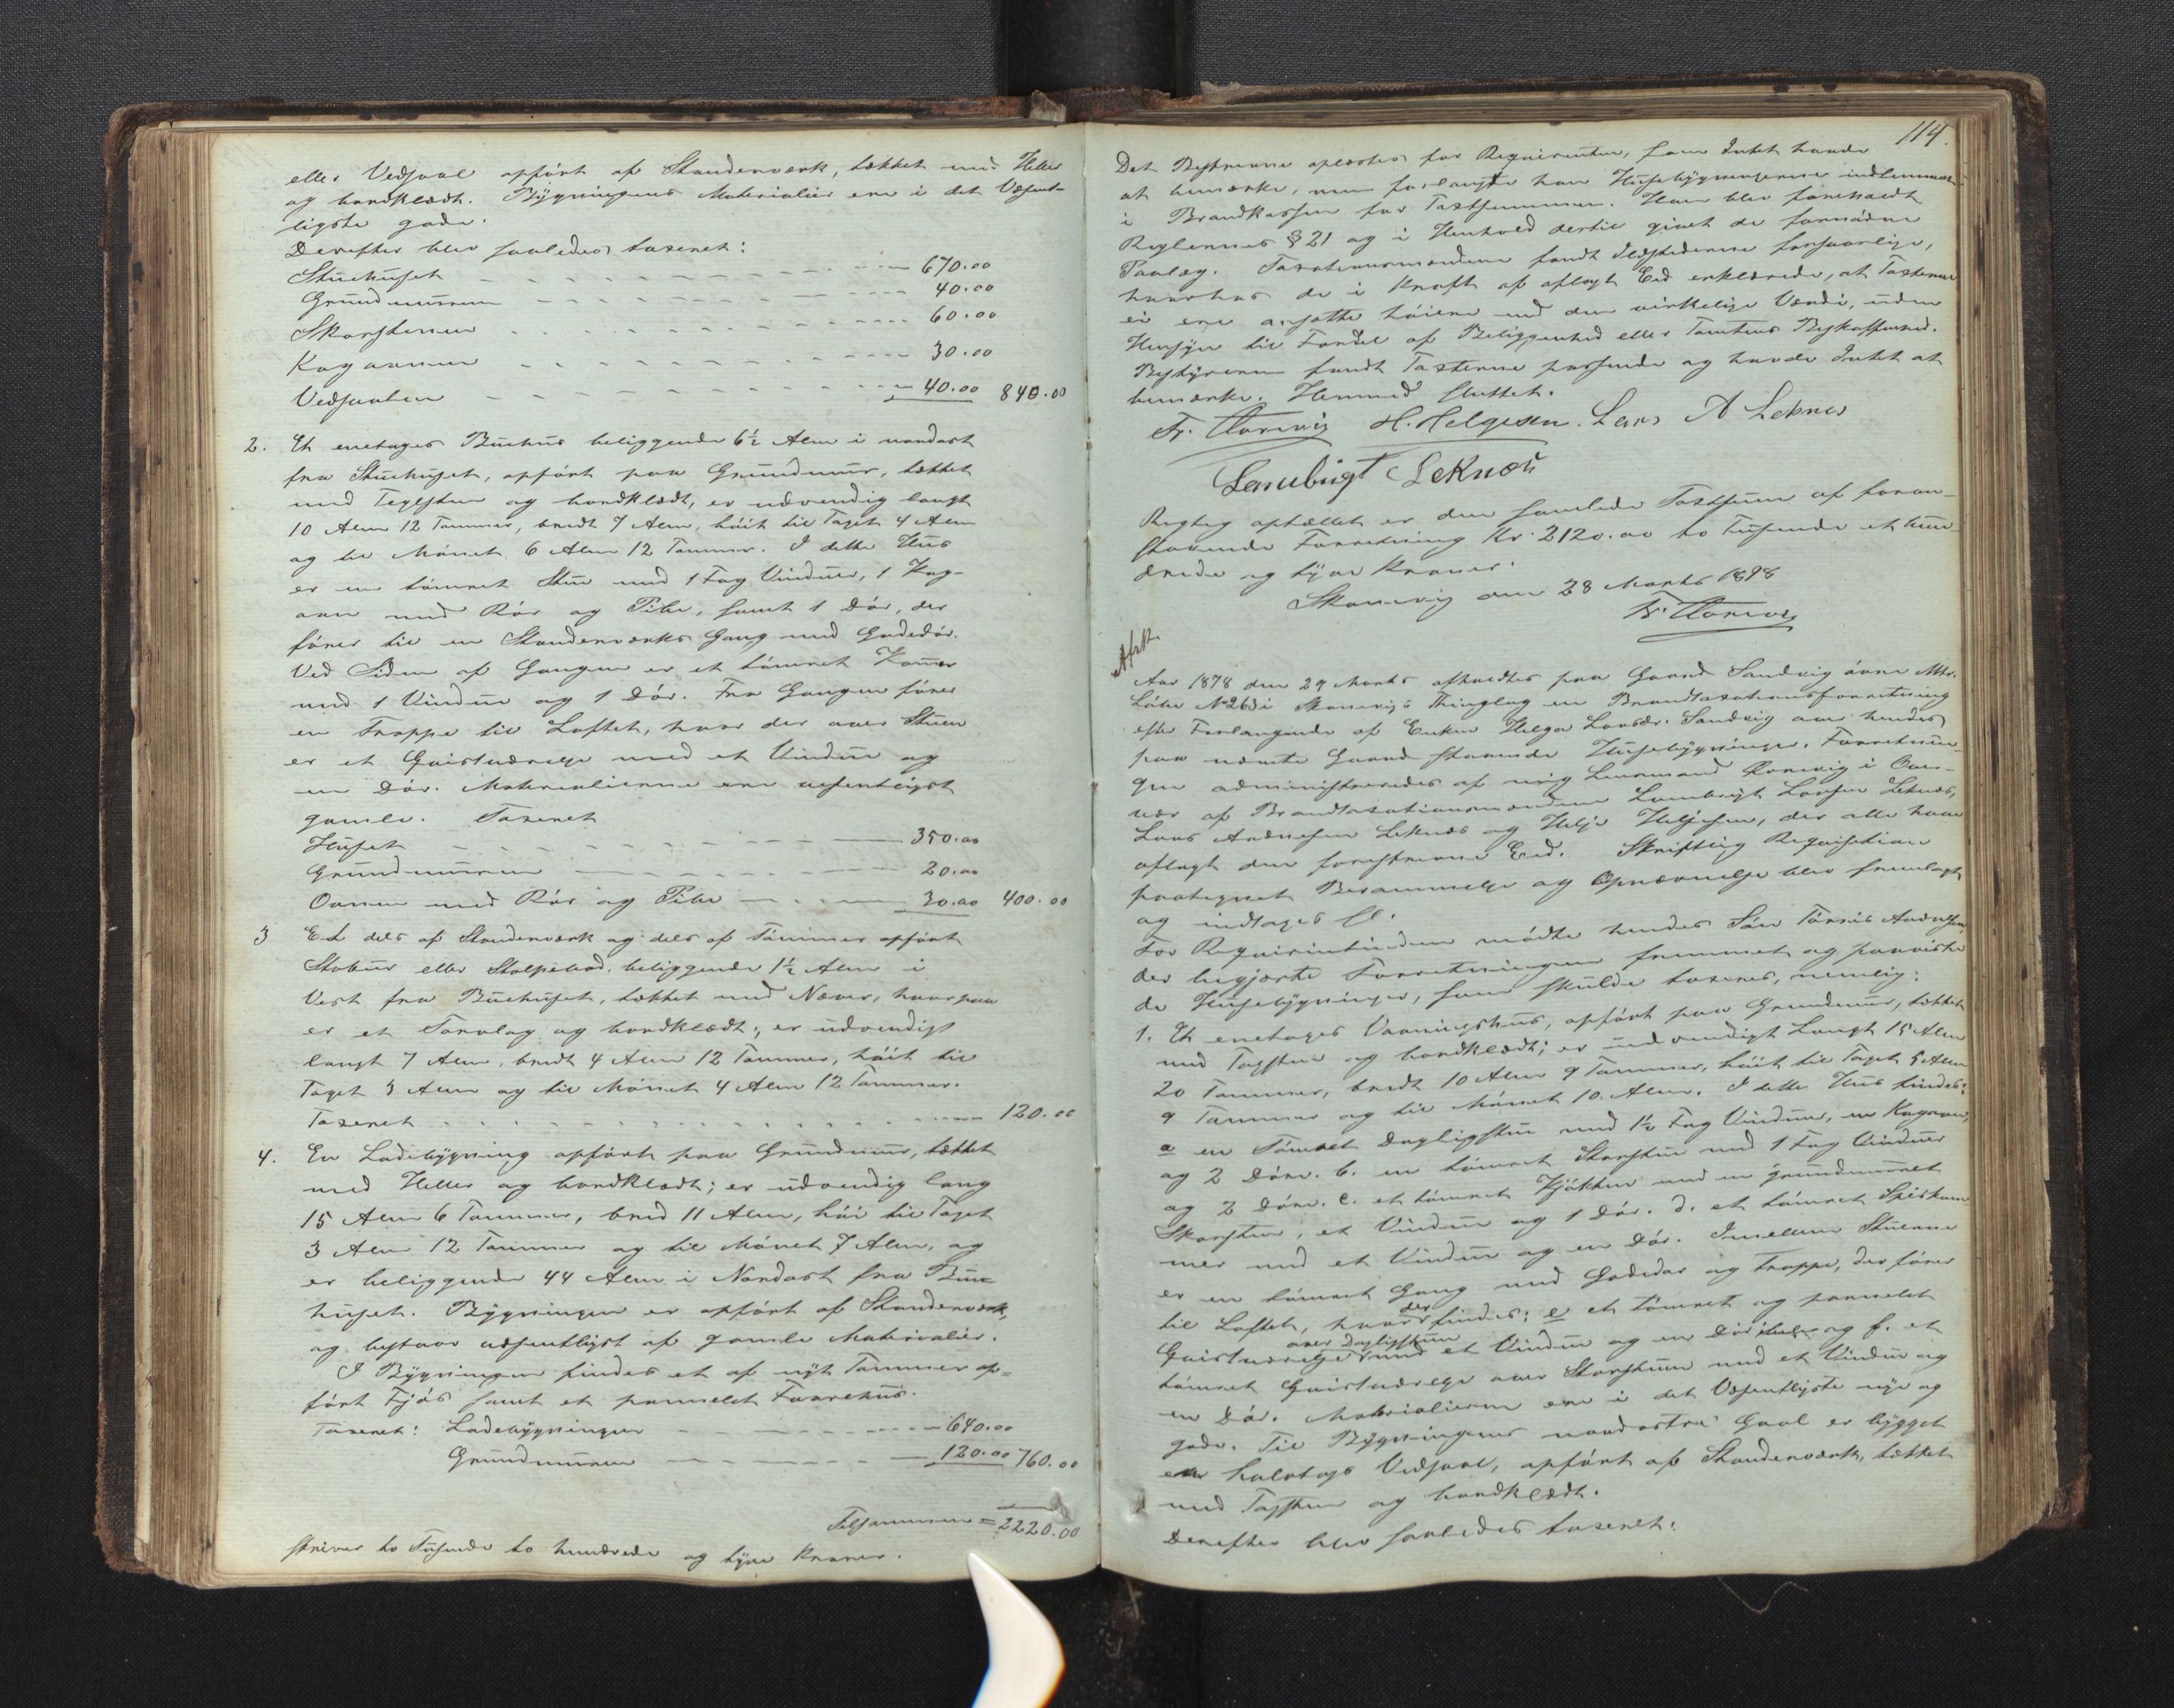 eller Vedsval opført af Standerværk, tækket med Heller
og bordklædt. Bÿgningens Materialier ere i det Væsent-
ligste gode.
Derefter blev saaledes taxeret:
Stuehuset - - - - - 670.00
Grundmuren - - - - - 40.00
Skorstenen - - - - - 60.00
Kogovnen - - - - - 30.00
Vedsvalen - - - - - 40.00 840.00
2. Et enetages Buehus beliggende 6½ Alen i nordost
fra Stuehuset, opført paa Grundmuur, tækket
med Teglsten og bordklædt, er udvendig langt
10 Alen 12 Tommer, bredt 7 Alen, høit til Taget 4 Alen
og til Mønet 6 Alen 12 Tommer. I dette Hus
er en tømret Stue med 1 Fag Vinduer, 1 Kog-
ovn med Rør og Pibe, samt 1 Dør, der
fører til en Standerværks Gang med Gadedør.
Ved Siden af Gangen er et tømret Kammer
med 1 Vindue og 1 Dør. Fra Gangen fører
en Trappe til Loftet, hvor der over Stuen
er et Qvistværelse med et Vindue og
en Dør. Materialierne ere væsentligst
gamle. Taxeret
Huset - - - - - 350.00
Grundmuren - - - - - 20.00
Ovnen med Rør og Pibe - - - 30.00 400.00
3 Et dels af Standerværk og dels af Tømmer opført
Stabur eller Stolpebod, beliggende 1½ Alen i
Vest fra Buehuset, tækket med Næver, hvorpaa
er et Torvlag og bordklædt; er udvendigt
langt 7 Alen, bredt 4 Alen 12 Tommer, høit til
Taget 3 Alen og til Mønet 4 Alen 12 Tommer.
Taxeret . . . . . 120.00
4. En Ladebÿgning opført paa Grundmuur, tækket
med Heller og bordklædt; er udvendig lang
15 Alen 6 Tommer, bred 11 Alen, høi til Taget
3 Alen 12 Tommer og til Mønet 7 Alen, og
er beliggende 44 Alen i Nordost fra Bue-
huset. Bÿgningen er opført af Standerværk,
og bestaar væsentligst af gamle Materialier.
I Bÿgningen findes et af nÿt Tømmer op-
ført Fjøs samt et pannelet Faarehus.
Taxeret: Ladebÿgningen - - - - 640.00
Grundmuren - - - - 120.00 760.00
Tilsammen = 2220.00
skriver to Tusinde to hundrede og tÿve Kroner.
114.
Det Beskrevne oplæstes for Reqvirenten, som Intet havde
at bemærke, men forlangte han Husebÿgningerne indlemmet
i Brandkassen for Taxtsummen. Han blev foreholdt
Reglernes § 21 og i Henhold dertil givet de fornødne
Paalæg. Taxationsmændene fandt Ildstederne forsvarlige,
hvorhos de i Kraft af aflagt Eed erklærede, at Taxterne
ei ere ansatte høiere end den virkelige Værdi, uden
Hensÿn til Fordel af Beliggenhed eller Tomtens Beskaffenhed.
Bestÿreren fandt Taxterne passende og havde Intet at
bemærke. Hermed sluttet.
H. Helgesen. Lars A Leknes
Lambrigt Leknæs
Rigtig optællet er den samlede Taxtsum af foran-
staaende Forretning Kr. 2120.00 to Tusinde et hun-
drede og tÿve Kroner.
Skonevig den 28 Marts 1878
Afst.
Aar 1878 den 29 Marts afholdtes paa Gaard Sandvig øvre Mtr.
Løbe No 263 i Skonevigs Thinglag en Brandtaxationsforretning
efter Forlangende af Enken Helga Larsdr. Sandvig over hendes
paa nævnte Gaard staaende Husebÿgninger. Forretnin-
gen administreredes af mig Lensmand i Over-
vær af Brandtaxationsmændene Lambrigt Larsen Leknæs,
Lars Andersen Leknæs og Helje Heljesen, der alle have
aflagt den foreskrevne Eed. Skriftlig Reqvisition
paategnet Berammelse og Opnævnelse blev fremlagt
og indtages
For Reqvirentinden mødte hendes Søn Tørris Andersen,
der begjærte Forretningen fremmet og paaviste
de Husebÿgninger, som skulde taxeres, nemlig:
1. Et enetages Vaaningshus, opført paa Grundmuur, tækket
med Tagsten og bordklædt; er udvendigt Langt 15 Alen
20 Tommer, bredt 10 Alen 9 Tommer, høit til Taget 5 Alen
9 Tommer og til Mønet 10 Alen. I dette Hus findes:
a en Tømret Dagligstue med 1½ Fag Vinduer, en Kogeovn,
og 2 Døre. b. en tømret Storstue med 1 Fag Vinduer
og 2 Døre. c. et tømret Kjøkken med en grundmuret
Skorsten, et Vindue og 1 Dør. d. et tømret Spiskam-
mer med et Vindue og en Dør. Imellem Stuerne
er en tømret Gang med Gadedør og Trappe, der fører
til Loftet, hvor der findes: e et tømret og pannelet
Qvistværelse over Dagligstuen med et Vindue og en Dør og f. et
tømret Qvistværelse over Storstuen med et Vindue og
en Dør. Materialierne ere i det Væsentligste nÿe og
gode. Til Bÿgningens nordostre Gavl er bÿgget
en halvtags Vedsval, opført af Standerværk, tækket
med Tagsten og bordklædt.
Derefter blev saaledes taxeret: